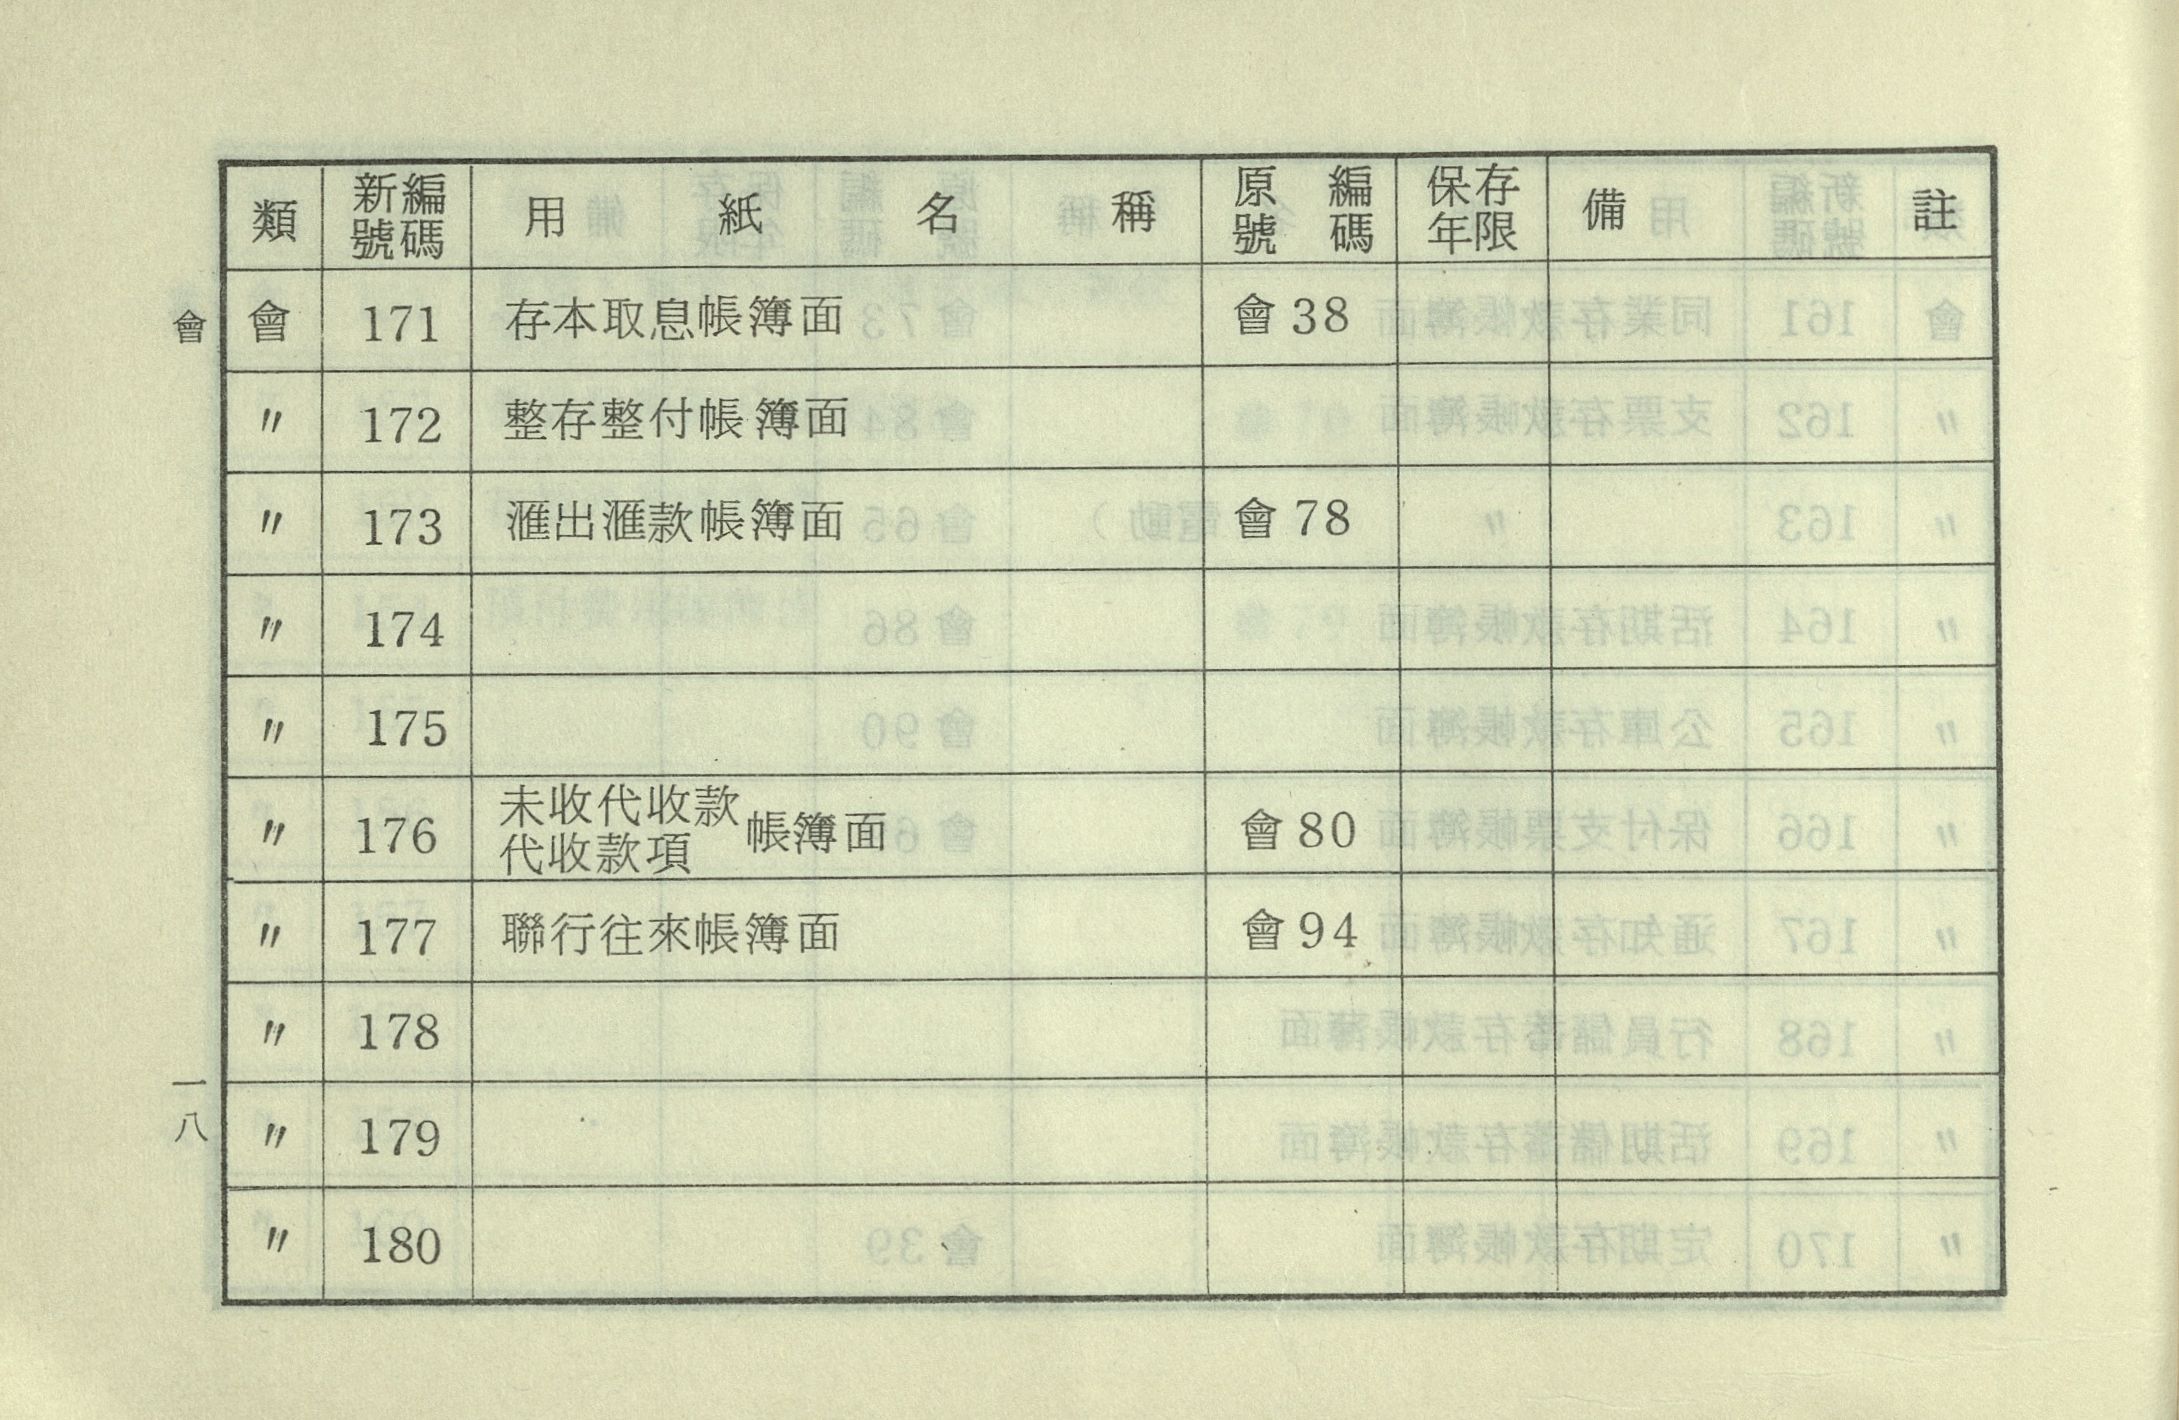 類 新編號碼 用紙名稱 原編號碼 保存年限 備註
會 171 存本取息帳簿面 會38
〃 172 整存整付帳簿面
〃 173 滙出滙款帳簿面 會78
〃 174
〃 175
〃 176 未收代收款
代收款項 帳簿面 會80
〃 177 聯行往來帳簿面 會94
〃 178
〃 179
〃 180
會
一八